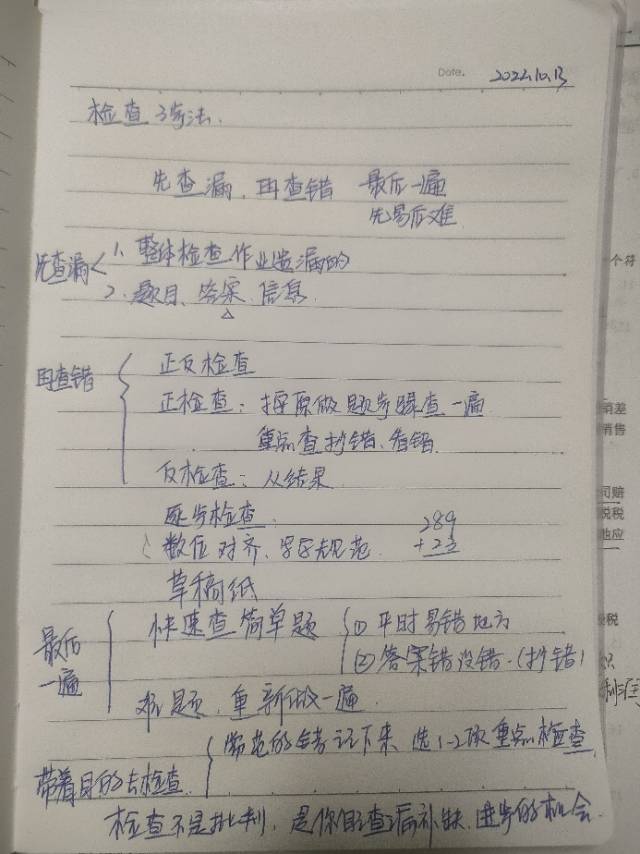 Date. 2022.10.13
检查3步法.
先查漏、再查错 最后一遍
先易后难
先查漏
1. 整体检查作业遗漏的
2. 题目、答案、信息
再查错
正反检查
正检查:按原做题步骤查一遍
重点查抄错、看错
反检查:从结果
逐步检查:
数位对齐、书写规范
289
+23
草稿纸
最后一遍
快速查简单题
① 平时易错地方
② 答案错没错.(抄错)
难题,重新做一遍
带着目的去检查
常犯的错记下来 选1-2项重点检查
检查不是批判,是你自查漏补缺、进步的机会
个符
销差
销售
司赔
税税